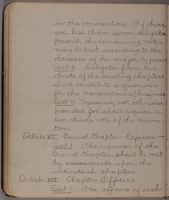 in the convention. If there
are less than seven delegates
present, the remaining votes
may be cast according to the
decision of the majority present.
Sect 3 Delegates from two
thirds of the existing chapters
shall constitute a quorum
for the transaction of business
Sect 4 Measures, not otherwise
provided for shall require a
two thirds vote of the conven-
tion.
Article VI. Grand Chapter Expenses
Sect 1 The expenses of the
Grand Chapter shall be met
by assessments upon the
individual chapters.
Article VII. Chapter Officers
Sect 1. The officers of each